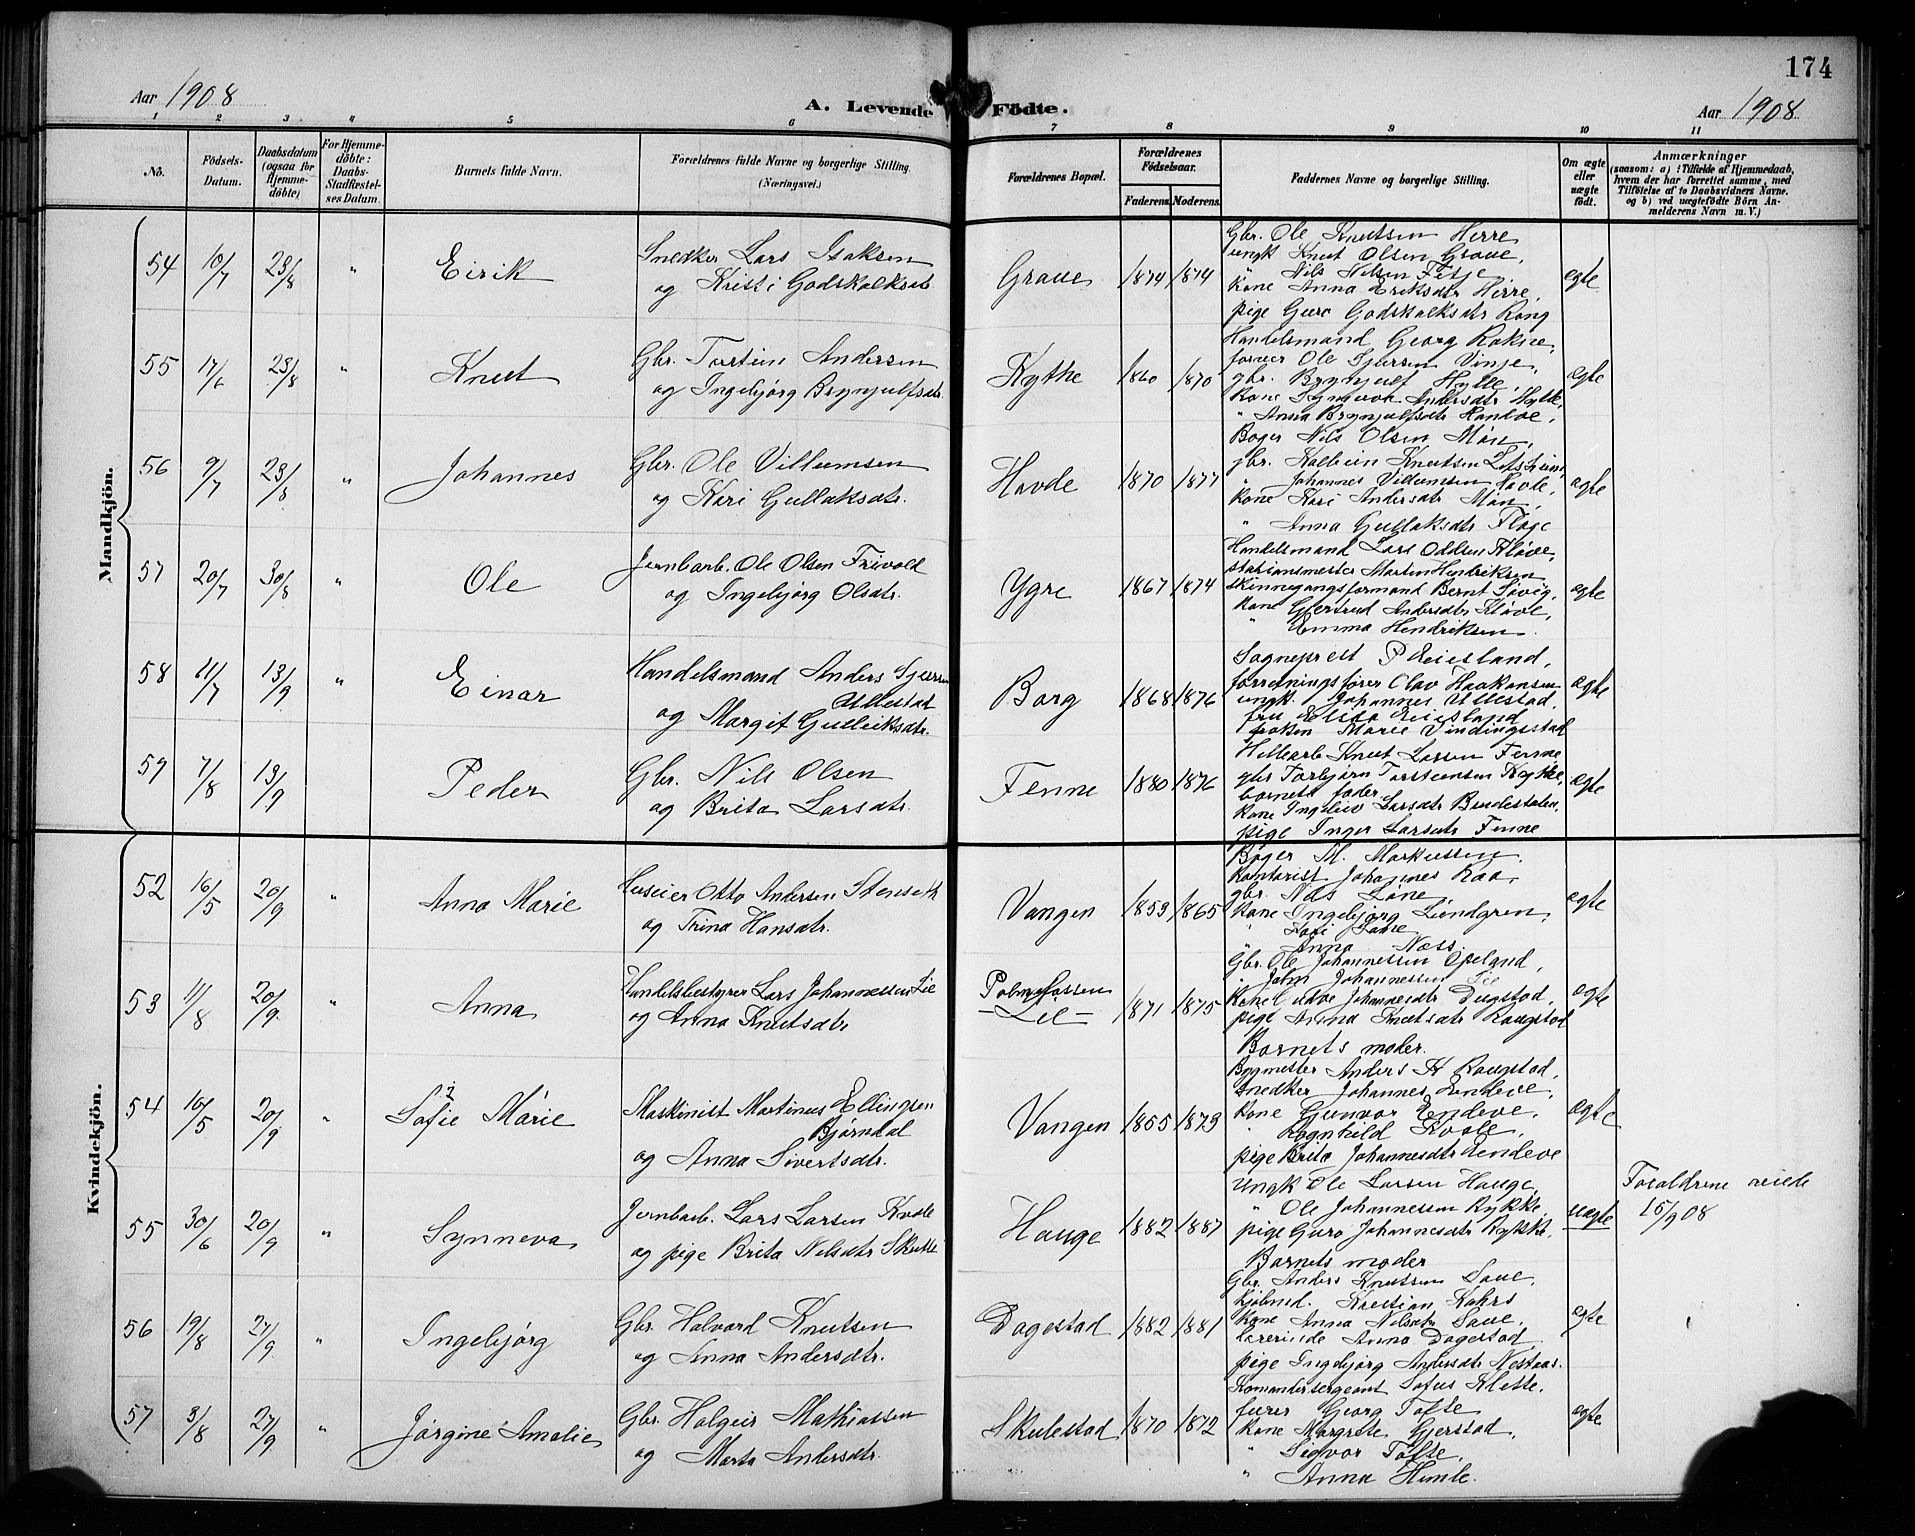 174
Aar 1908
A. Levende Födte.
Aar 1908
1 2 3 4 5 6 7 8 9 10 11
No.
Födsels-Datum.
Daabsdatum (ogsaa for Hjemmedöbte)
For Hjemmedöbte: Daabs-Stadfæstelses Datum.
Barnets fulde Navn.
Forældrenes fulde Navne og borgerlige Stilling. (Næringsvei.)
Forældrenes Bopæl.
Forældrenes Födselsaar.
Faderens. Moderens.
Faddernes Navne og borgerlige Stilling.
Om ægte eller uægte födt.
Anmærkninger
(saasom: a) i Tilfælde af Hjemmedaab, hvem der har forrettet samme, med Tilföielse af to Daabsvidners Navne, og b) ved uægtefödte Börn Anmelderens Navn m. V.)
Mandkjön.
54 10/7 23/8 " Eirik
Snekker Lars Isaksen
og Kristi Godskalksdt
Graue 1874 1874
Gbr. Ole Knutsen Herre
ungk Knut Olsen Graue,
" Nils Nilsen Tesje
kone Anna Eriksdtr Herre,
pige Guro Godskalksdtr Rong
ægte
55 17/6 23/8 " Knut
Gbr. Torstein Andersen
og Ingebjørg Brynjulfsdtr.
Kythe 1860 1870
Handelsmand Georg Rokne,
forver Ole Sjursen Vinje,
gbr. Brynjulf Hylle,
kone Synneva Andersdtr Hylle,
" Anna Brynjulfsdtr Randve,
ægte
56 9/7 23/8 " Johannes
Gbr. Ole Villumsen
og Kari Gullaksdtr.
Havde 1870 1877
Bager Nils Olsen Møn,
gbr. Kolbein Knutsen
" Johannes Villumsen Havde,
kone Kari Andersdtr Møn,
" Anna Gullaksdtr Flage
ægte
57 20/7 30/8 " Ole
Jernbarb. Ole Olsen Trivold
og Ingebjørg Olsdtr.
Ygre 1867 1874
Handelsmand Lars Oddsen Kløve,
stationsmester Martin Hendriksen
skinnegangsformand Bernt Søvig,
kone Gjertrud Andersdtr Kløve,
" Emma Hendriksen
ægte
58 11/7 13/9 " Einar
Handelsmand Anders Sjursen
Ullestad
og Margit Gulleiksdtr.
Borg 1868 1876
Sogneprest P Eiesland,
forretningsfører Olav Haakonsen
ungk. Johannes Ullestad,
fru Elisa Eiesland
frøken Marie Vindingsstad
ægte
59 7/8 13/9 Peder
Gbr. Nils Olsen
og Brita Larsdtr.
Fenne 1880 1876
Hellearb Knut Larsen Fenne
gbr Torbjørn Torsteinsen Rykke,
barnets fader
kone Ingeliv Larsdtr Brudestolen,
pige Inger Larsdtr Fenne
ægte
Kvindekjön.
52 16/5 20/9 " Anna Marie
Huseier Otto Andersen Stenseth
og Trina Hansdtr.
Vangen 1853 1865
Bager M. Markussen.
Kontorist Johannes Raa,
gbr. Nils Løne,
kone Ingebjørg Lundgren,
" Kari Løne
" Anna Næss
ægte
53 11/8 20/9 " Anna
Handelsbestyrer Lars Johannessen Lie
og Anna Knutsdtr
Palmafossen
– Lie – 1871 1875
Gbr. Ole Johannessen Opeland,
" John Johannessen Lie
kone Ludve Johannesdtr Dugstad,
pige Anna Knutsdtr Raugstad
Barnets moder.
ægte
54 10/5 20/9 " Sofie Marie
Maskinist Martinus Ellingsen
Bjørndal
og Anna Sivertsdtr.
Vangen 1855 1873
Bygmester Anders H Raugstad,
snedker Johannes Endeve,
kone Gunvor Endeve,
" Ragnhild Kvale,
pige Brita Johannesdtr Endeve
ægte
55 30/6 20/9 " Synneva
Jernbarb. Lars Larsen Kvale
og pige Brita Nilsdtr Skutle
Hauge 1882 1887
Ungk Ole Larsen Hauge,
" Ole Johannessen Rykke,
pige Guro Johannesdtr Rykke,
Barnets moder
uægte
Forældrene viede
15/9 08
56 19/8 27/9 " Ingebjørg
Gbr. Halvard Knutsen
og Anna Andersdtr.
Dagestad 1882 1881
Gbr. Anders Knutsen Saue,
kjøbmd. Kristian Kahrs
kone Anna Nilsdtr Saue,
lærerinde Anna Dagestad
pige Ingebjørg Andersdtr Nestaas.
ægte
57 3/8 27/9 " Jørgine Amalie
Gbr. Holgeir Mathiassen
og Marta Andersdtr.
Skulestad 1870 1872
Komandersergeant Sofus Klette,
furer Georg Tofte
kone Margrete Gjerstad,
" Sigvor Tofte,
" Anna Himle.
ægte